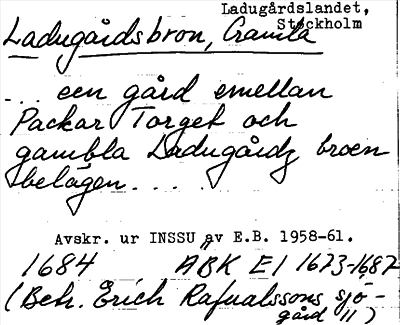 Ladugårdslandet,
Stockholm
Ladugårdsbron, Gamla
... een gård emellan
Packar Torget och
gambla Ladugårdz broen
belägen....
Avskr. ur INSSU av E.B. 1958-61.
1684 ÄBK EI 1673-1687
(Betr. Erich Rafualssons sjö-
gård 11)